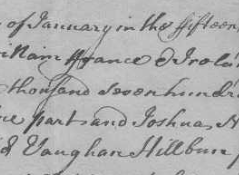 of January in the fifteen
ittain france & Irela
thousand seven hundr
part and Joshua
Vaughan Hillbun